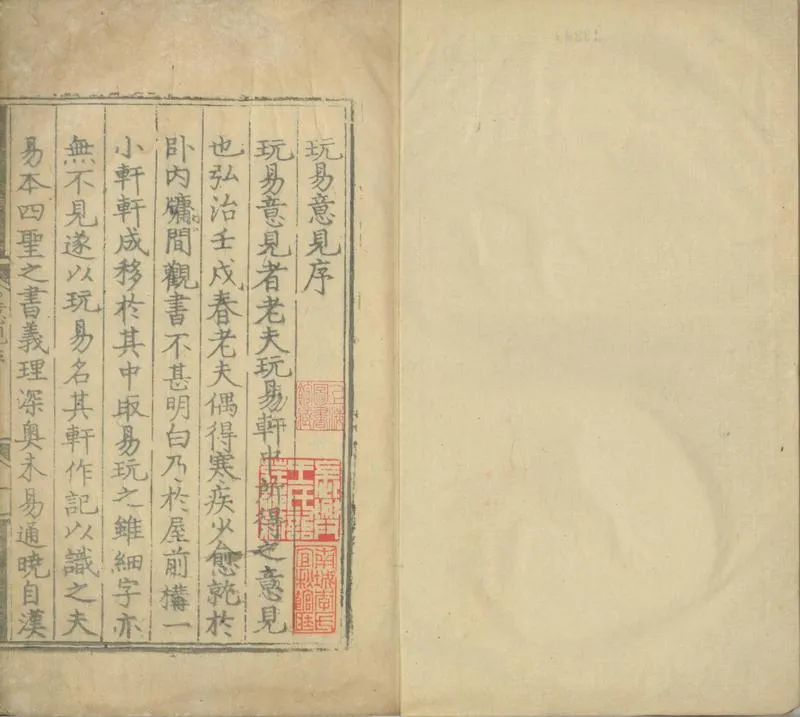 玩易意見序
玩易意見者老夫玩易軒中所得之意見
也弘治壬戌春老夫偶得寒疾少愈乾於
卧内牖間觀書不甚明白乃於屋前構一
小軒軒成移於其中取易玩之雖細字亦
無不見遂以玩易名其軒作記以識之夫
易本四聖之書義理深奥未易通曉自漢